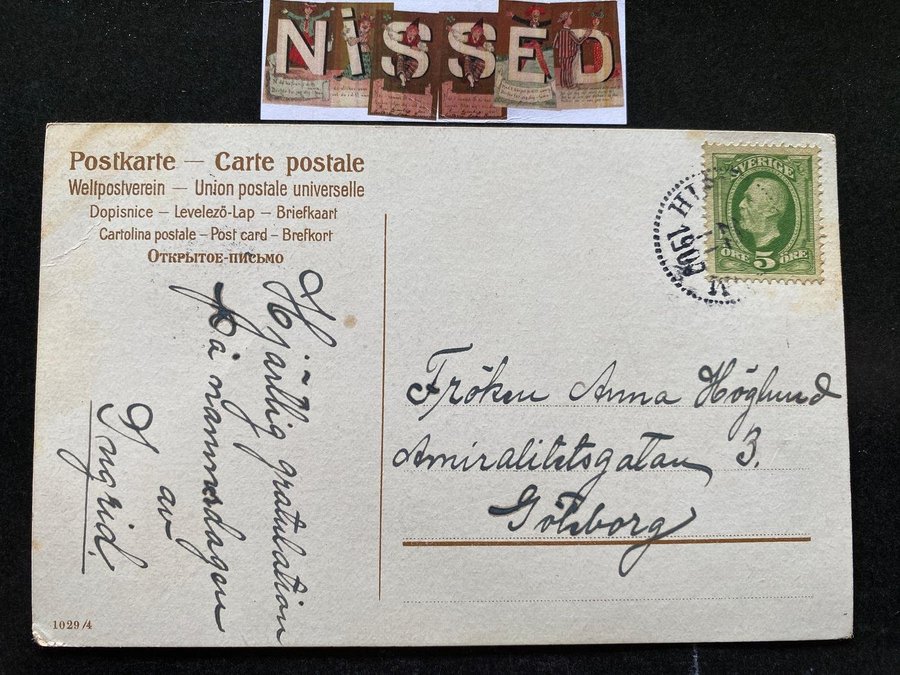 NiSSED
Postkarte — Carte postale
Weltpostverein — Union postale universelle
Dopisnice – Levelező-Lap – Briefkaart
Cartolina postale – Post card – Brefkort
Открытое-письмо
SVERIGE
ÖRE 5 ÖRE
Hjärtlig gratulation
på namnsdagen
av
Ingrid.
Fröken Anna Höglund
Amiralitetsgatan 3.
Göteborg
1029/4